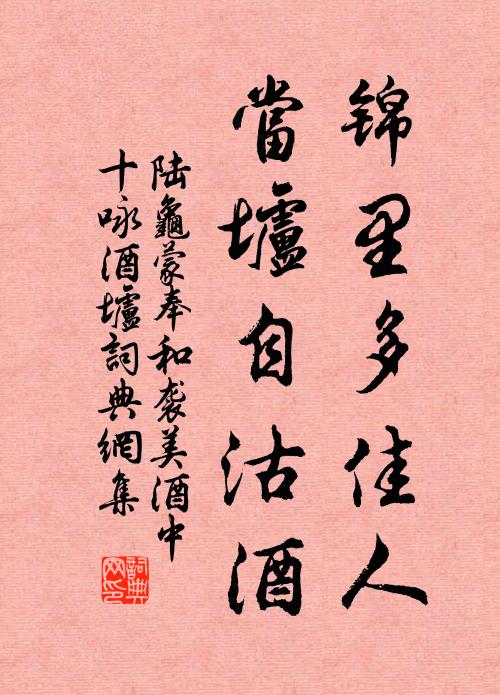 锦里多佳人
當壚自沽酒
陆龜蒙奉和袭美酒中
十咏酒壚詞典網集
詞典网印